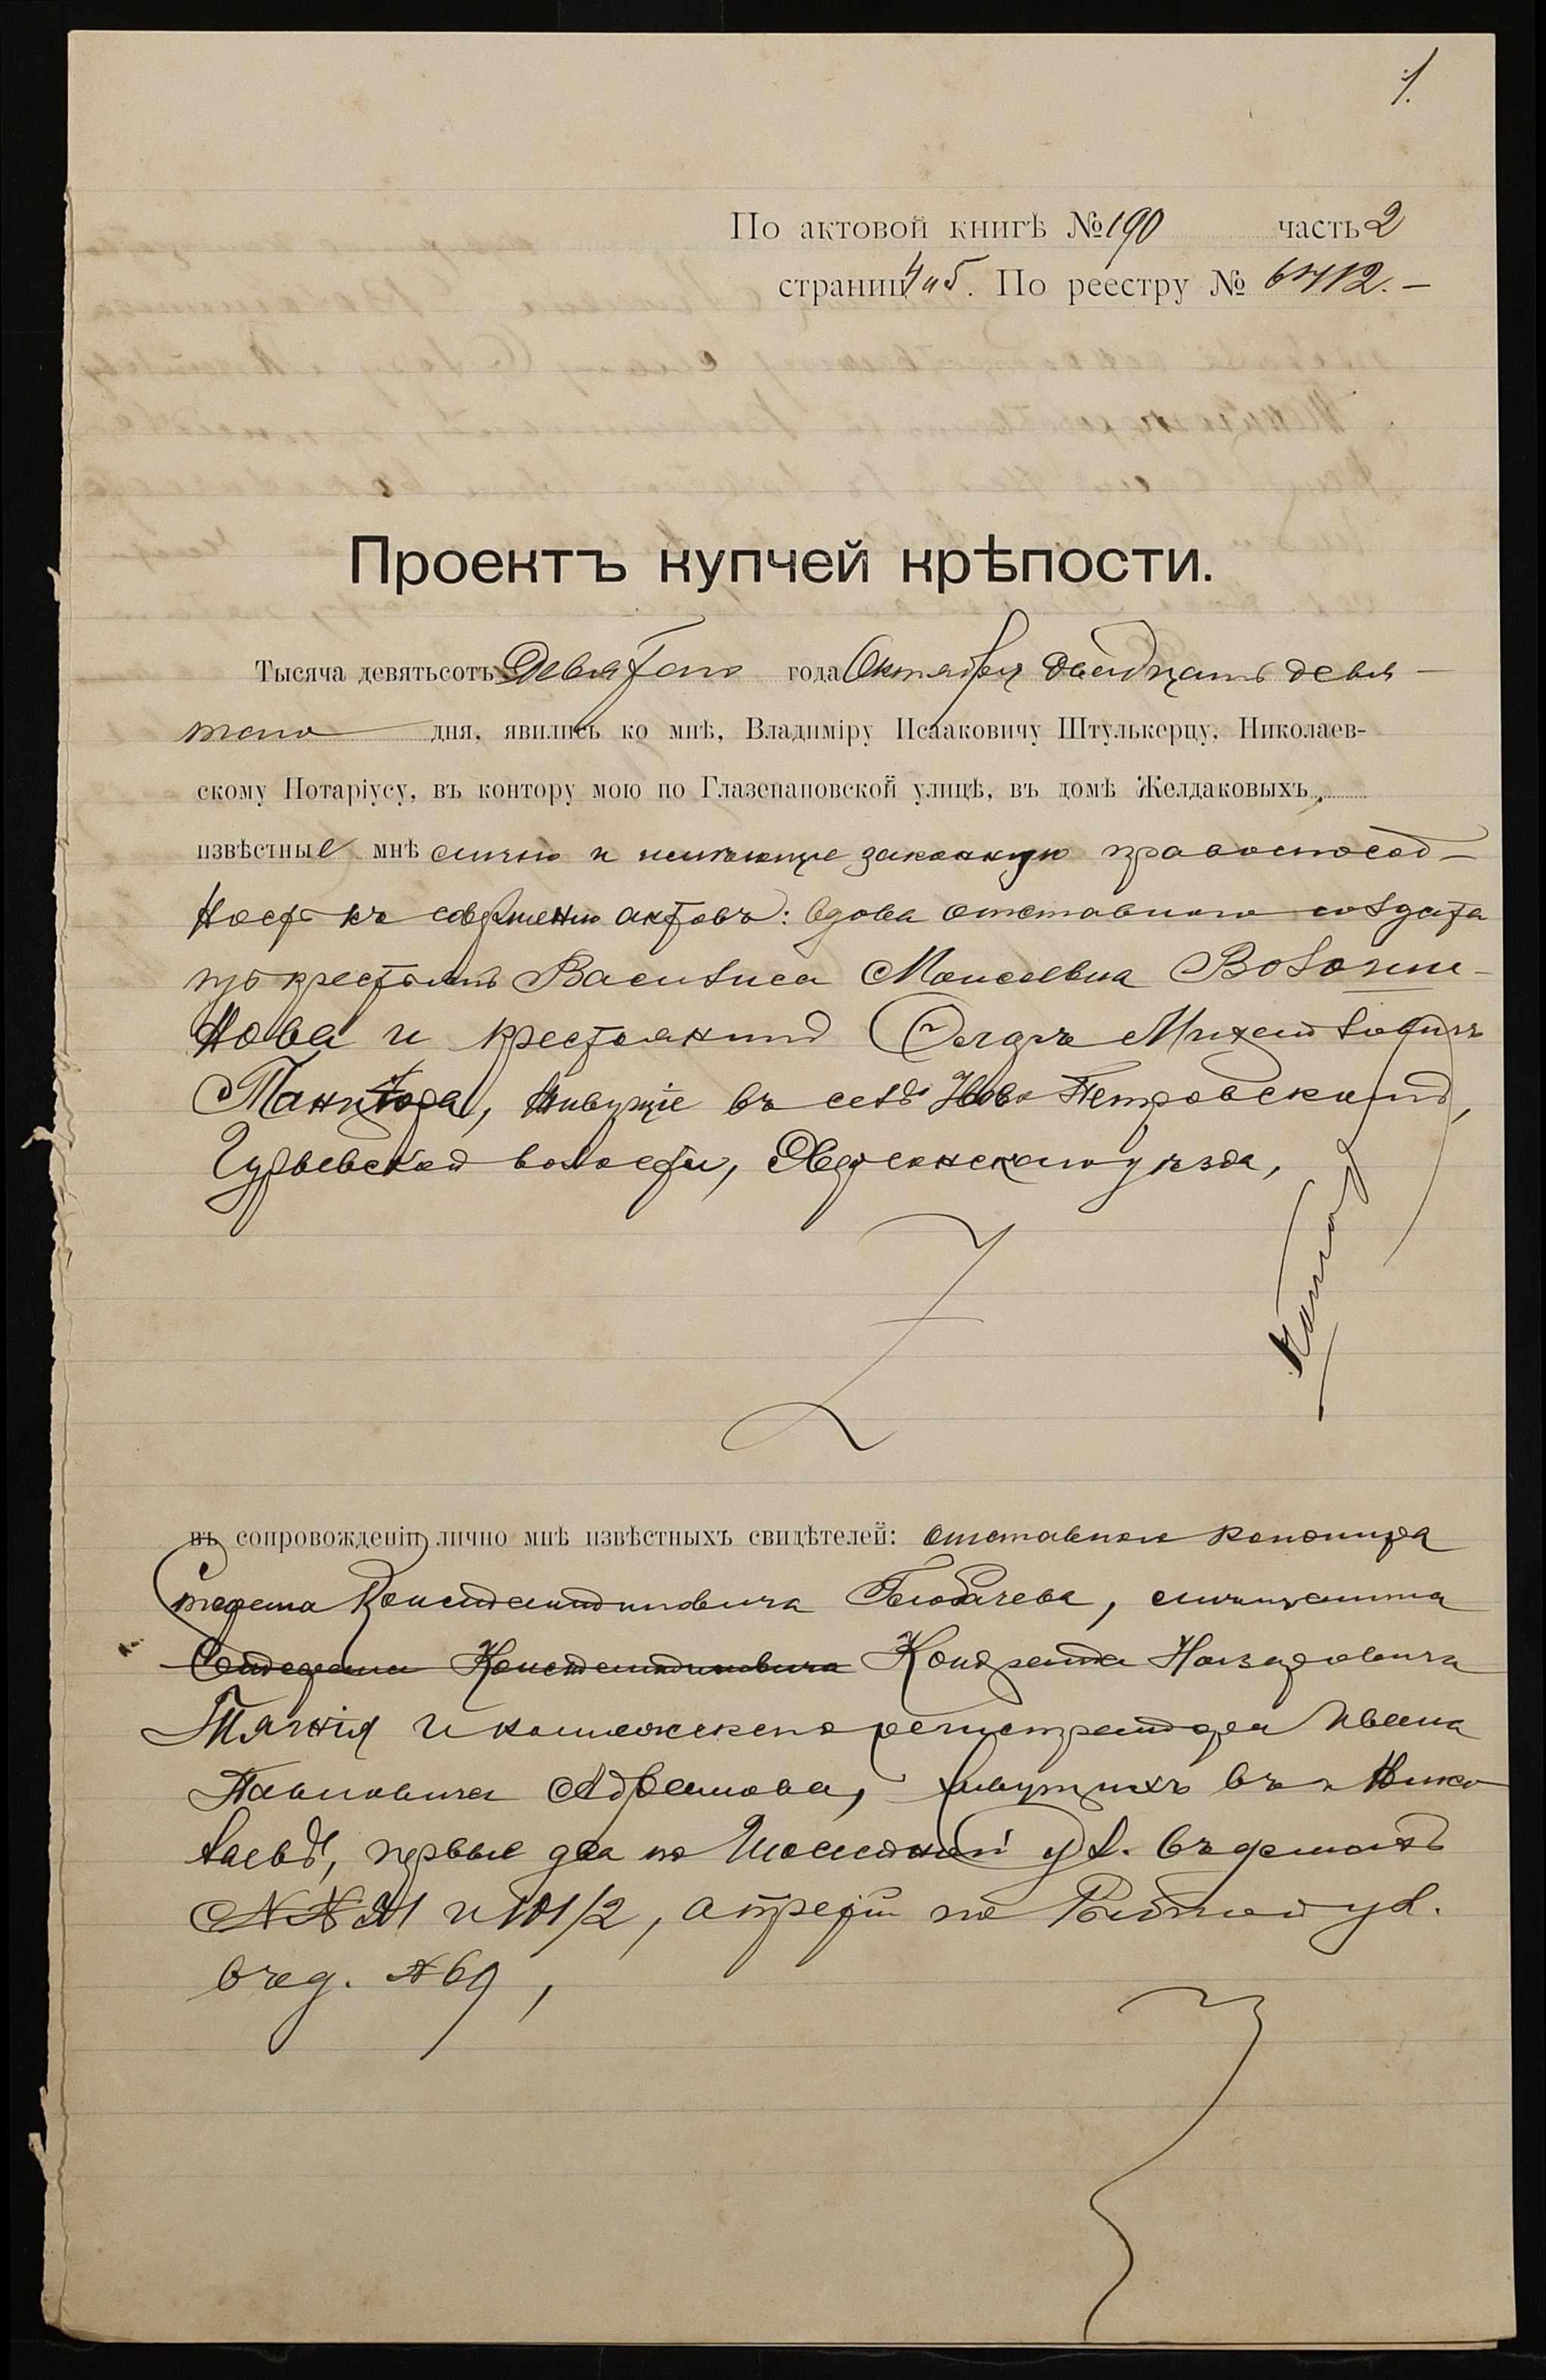 1.
По актовой книгѣ № 190 часть 2
страниц 4 и 5. По реестру № 6712. —
Проектъ купчей крѣпости.
Тысяча девятьсотъ Девятаго года Октября двадцать девя-
таго дня, явились ко мнѣ, Владиміру Исааковичу Штулькерцу, Николаев-
скому Нотаріусу, въ контору мою по Глазенаповской улицѣ, въ домѣ Желдаковыхъ,
извѣстные мнѣ лично и имѣющіе законную правоспособ-
ность къ совершенію актовъ: вдова отставного солдата
изъ крестьянъ Василиса Моисеевна Волошин-
нова и крестьянинъ Михайловичъ
живущіе въ селѣ Ново Петровскомъ,
Гурьевской волости, Херсонскаго уѣзда,
въ сопровожденіи лично мнѣ извѣстныхъ свидѣтелей: отставного канонира
Константиновича Глобачева, мѣщанина
Константиновича Кондрата Назаровича
Тягнія и коллежскаго регистратора Ивана
Павловича Абрамова, живущихъ въ г. Нико-
лаевѣ, первые два по ул. въ домахъ
№№ и 101/2, а третій по Рыбной ул.
въ д. № 69,